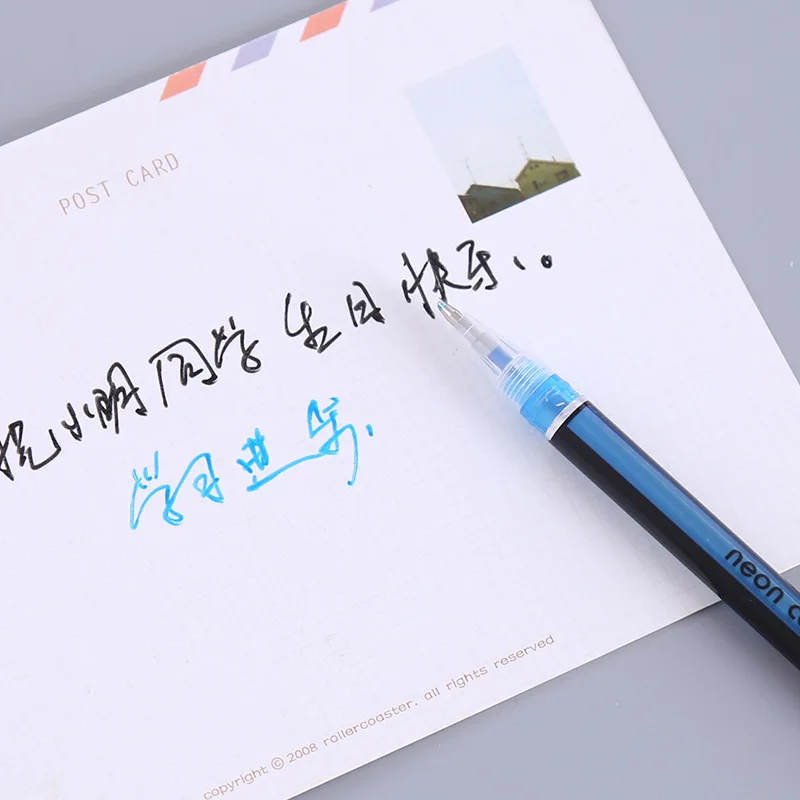 POST CARD
祝小明同学生日快乐、。
学习进步.
neon co
copyright © 2008 rollercoaster. all rights reserved